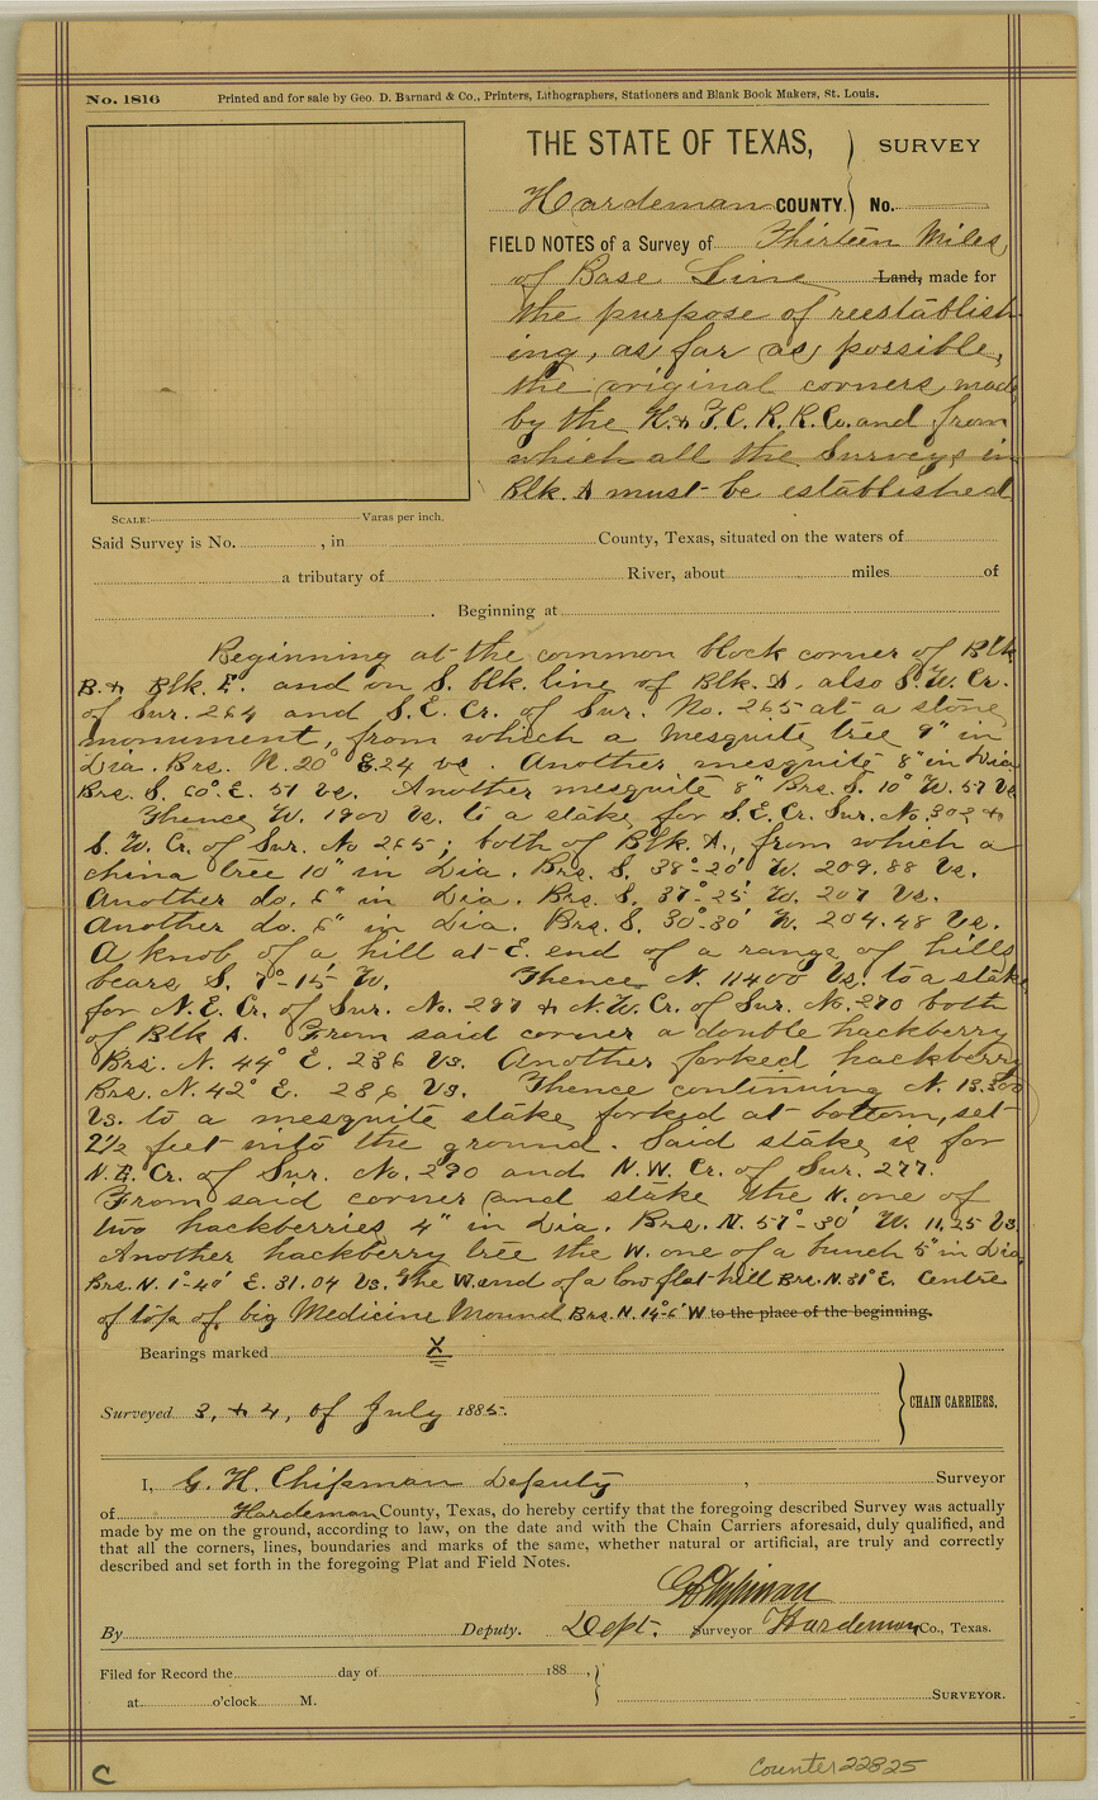 No. 1816 Printed and for sale by Geo. D. Barnard & Co., Printers, Lithographers, Stationers and Blank Book Makers, St. Louis.
THE STATE OF TEXAS, SURVEY
Hardeman COUNTY. No.
FIELD NOTES of a Survey of Thirteen Miles
of Base Line Land, made for
the purpose of reestablish
ing, as far as possible,
the original corners made
by the H. & T. C. R. R. Co. and from
which all the Surveys in
Blk. A must be established
SCALE: Varas per inch.
Said Survey is No. , in County, Texas, situated on the waters of
a tributary of River, about miles of
. Beginning at
Beginning at the common block corner of Blk
B. & Blk. E. and on S. blk. line of Blk. A. also S. W. Cr.
of Sur. 264 and S. E. Cr. of Sur. No. 265 at a stone
monument, from which a Mesquite tree 9" in
Dia. Brs. N. 20° E. 24 vs. Another mesquite 8" in Dia
Brs. S. 60°. E. 51 Vs. Another mesquite 8" Brs. S. 10° W. 57 Vs
Thence W. 1900 Vs. to a stake for S. E. Cr. Sur. No. 302 &
S. W. Cr. of Sur. No 265; both of Blk. A., from which a
china tree 10" in Dia. Brs. S. 38°-20' W. 209.88 Vs.
Another do. 6" in Dia. Brs. S. 37°-25' W. 207 Vs.
Another do. 6" in Dia. Brs. S. 30°-30' W. 204.48 Vs.
A knob of a hill at E. end of a range of hills
bears S. 7°-15' W. Thence N. 11400 Vs. to a stake
for N. E. Cr. of Sur. No. 297 & N. W. Cr. of Sur. No. 270 both
of Blk A. From said corner a double hackberry
Brs. N. 44° E. 236 Vs. Another forked hackberry
Brs. N. 42° E. 286 Vs. Thence continuing N. 13.300
Vs. to a mesquite stake forked at bottom, set
2½ feet into the ground. Said stake is for
N. E. Cr. of Sur. No. 290 and N. W. Cr. of Sur. 277.
From said corner and stake the N. one of
two hackberries 4" in Dia. Brs. N. 57°-30' W. 11.25 Vs.
Another hackberry tree the W. one of a bunch 5" in Dia
Brs. N. 1°-40' E. 31.04 Vs. The W. end of a low flat hill Brs. N. 31° E. Centre
of top of big Medicine Mound Brs. N. 14°-6' W to the place of the beginning.
Bearings marked X
Surveyed 3, & 4, of July 1885. CHAIN CARRIERS.
I, G. H. Chipman Deputy , Surveyor
of Hardeman County, Texas, do hereby certify that the foregoing described Survey was actually
made by me on the ground, according to law, on the date and with the Chain Carriers aforesaid, duly qualified, and
that all the corners, lines, boundaries and marks of the same, whether natural or artificial, are truly and correctly
described and set forth in the foregoing Plat and Field Notes.
G H Chipman
By Deputy. Dept. Surveyor Hardeman Co., Texas.
Filed for Record the day of 188 ,
at o'clock M. SURVEYOR.
C
Counter 22825